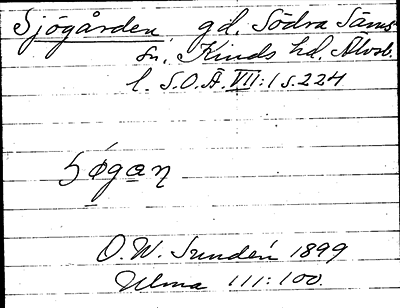 Sjögården, gd. Södra Säms
sn. Kinds hd. Älvsb.
l. S.O.Ä. VII:1 s. 224
O.W. Sundén 1899
Ulma 111:100.